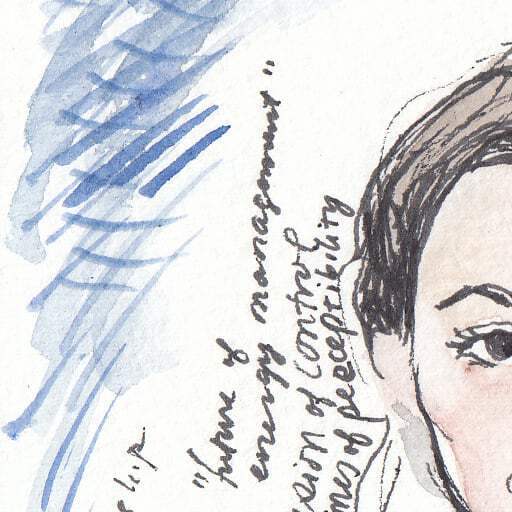 "future of
energy management"
sion of control
mes of perceptibility
ship.